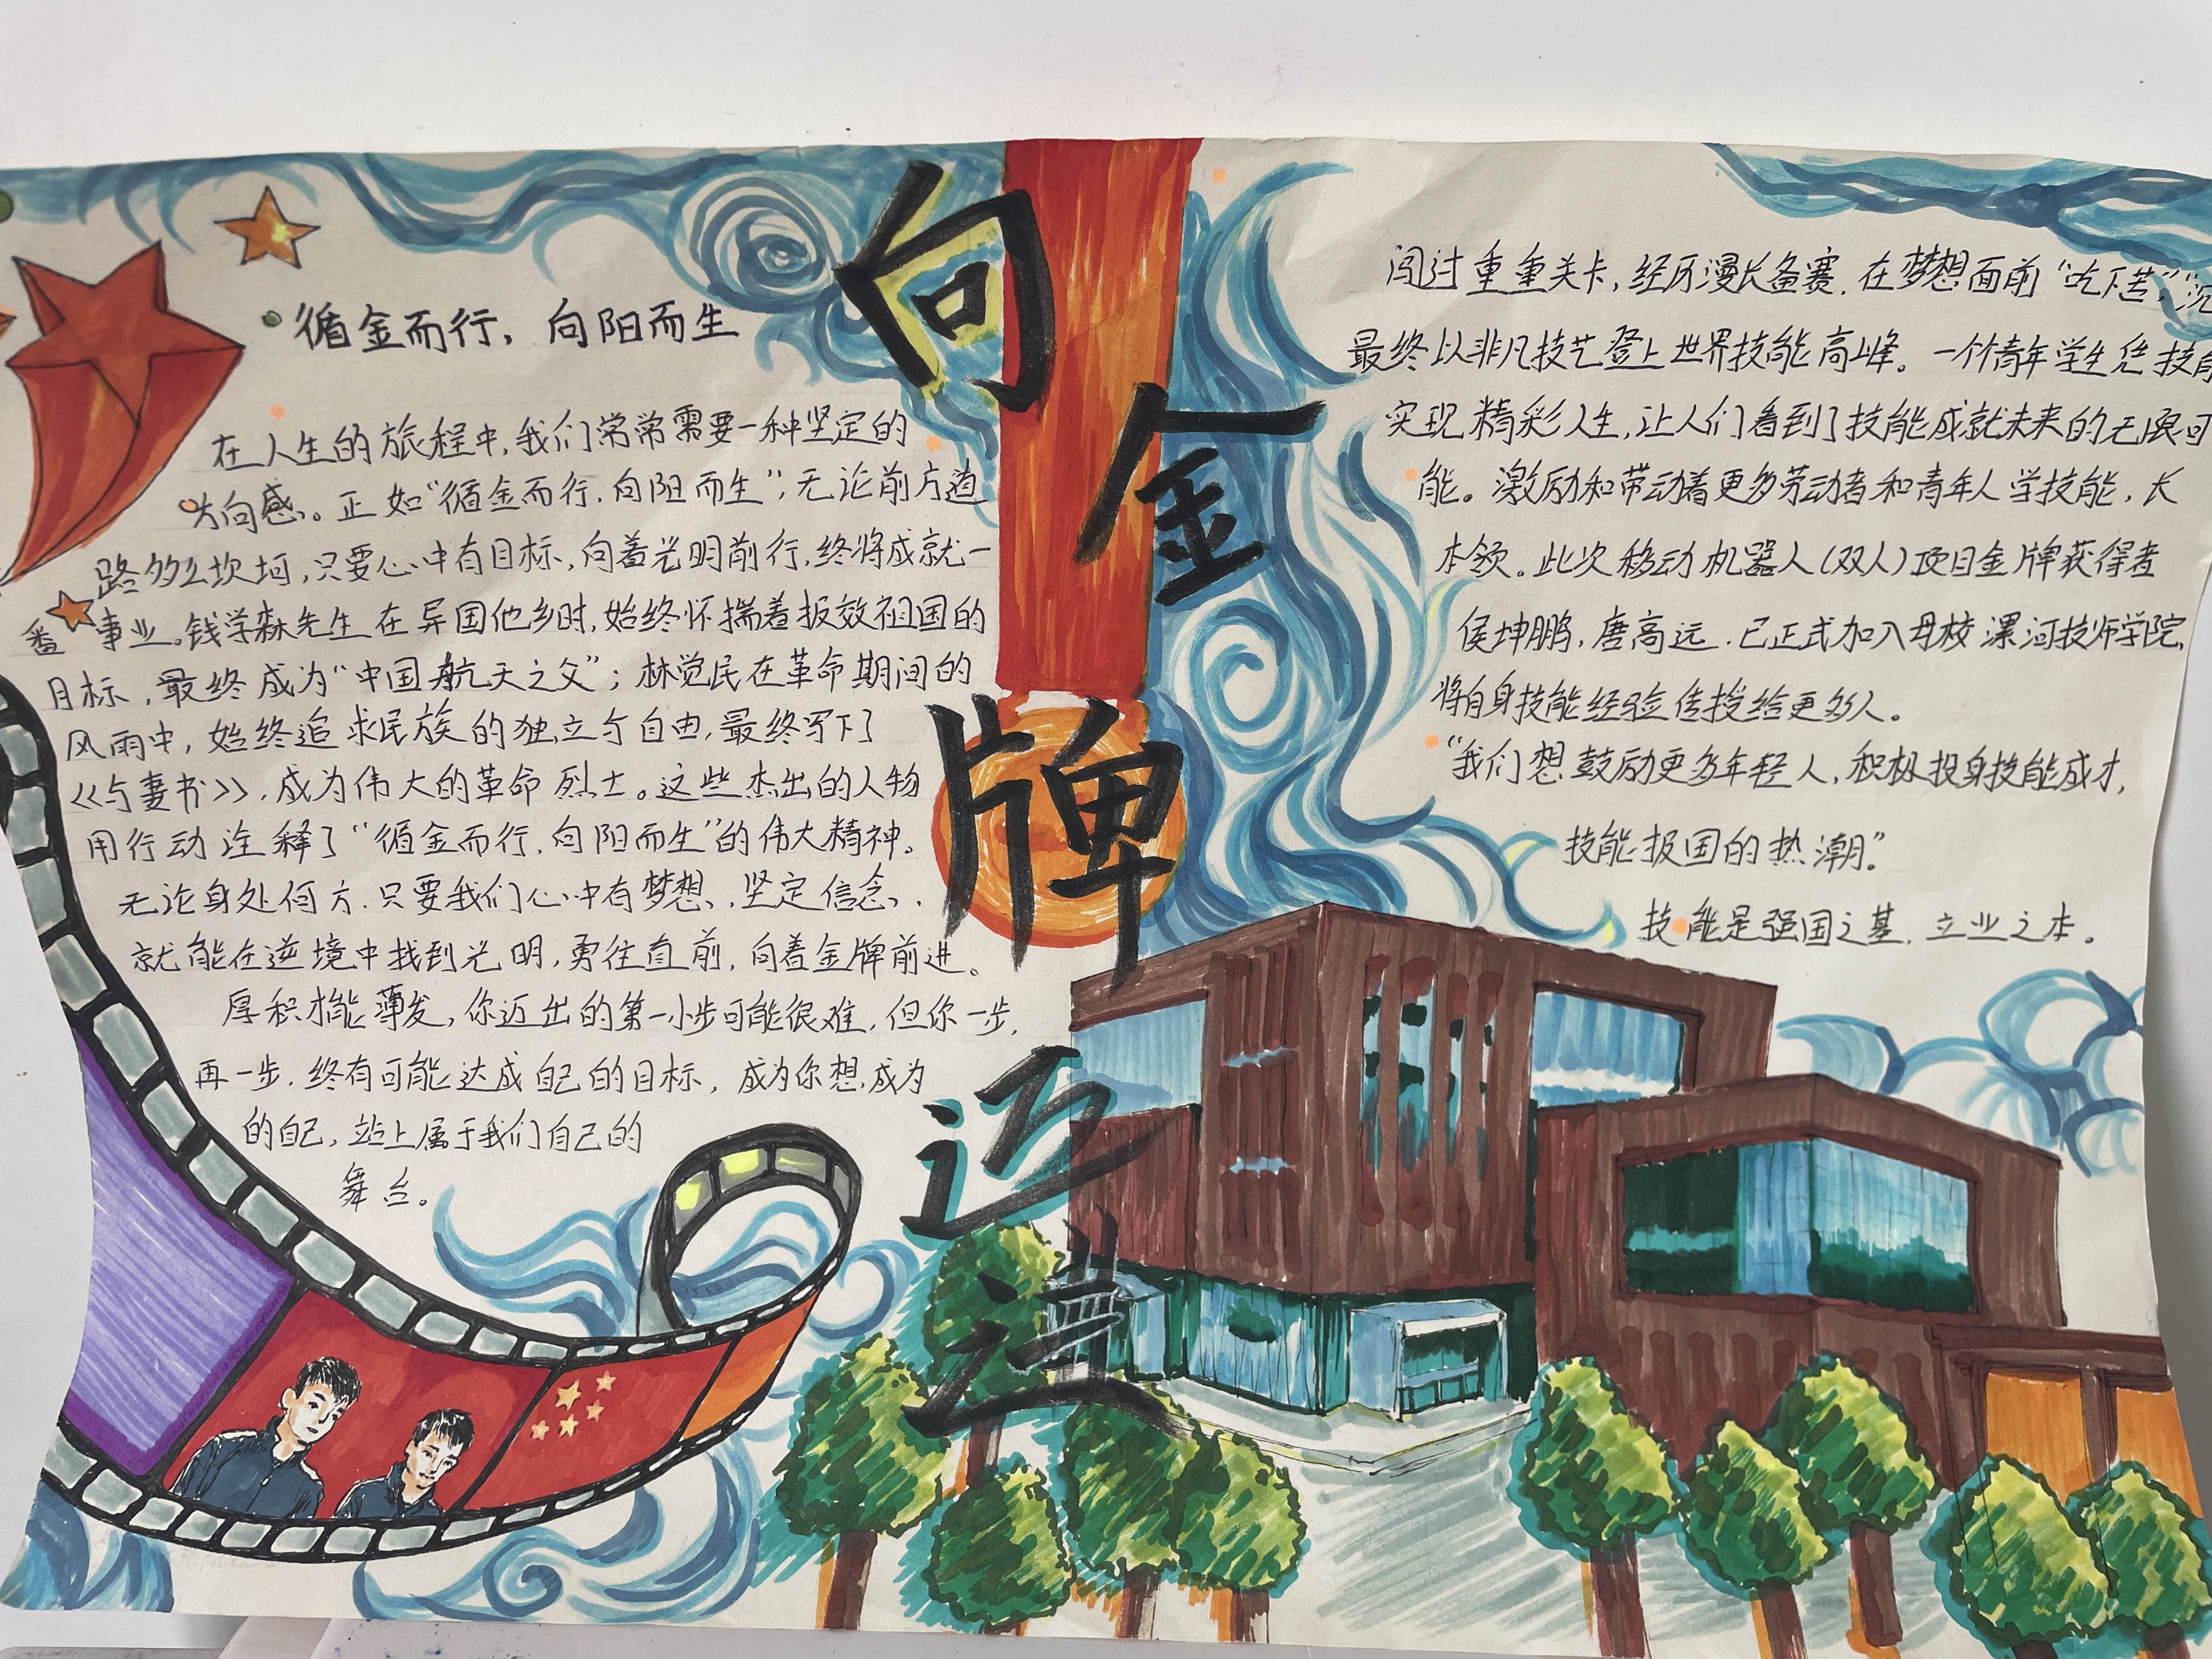 向金牌迈进
循金而行，向阳而生
在人生的旅程中，我们常常需要一种坚定的
方向感。正如“循金而行，向阳而生”，无论前方道
路多么坎坷，只要心中有目标，向着光明前行，终将成就一
番事业。钱学森先生在异国他乡时，始终怀揣着报效祖国的
目标，最终成为“中国航天之父”；林觉民在革命期间的
风雨中，始终追求民族的独立与自由，最终写下了
《与妻书》，成为伟大的革命烈士。这些杰出的人物
用行动诠释了“循金而行，向阳而生”的伟大精神。
无论身处何方，只要我们心中有梦想，坚定信念，
就能在逆境中找到光明，勇往直前，向着金牌前进。
厚积才能薄发，你迈出的第一小步可能很难，但你一步，
再一步，终有可能达成自己的目标，成为你想成为
的自己，站上属于我们自己的
舞台。
闯过重重关卡，经历漫长备赛，在梦想面前“吃下苦”，“沉
最终以非凡技艺登上世界技能高峰。一个青年学生凭技能
实现精彩人生，让人们看到了技能成就未来的无限可
能。激励和带动着更多劳动者和青年人学技能，长
本领。此次移动机器人（双人）项目金牌获得者
侯坤鹏，唐高远，已正式加入母校漯河技师学院，
将自身技能经验传授给更多人。
“我们想鼓励更多年轻人，积极投身技能成才，
技能报国的热潮。”
技能是强国之基，立业之本。